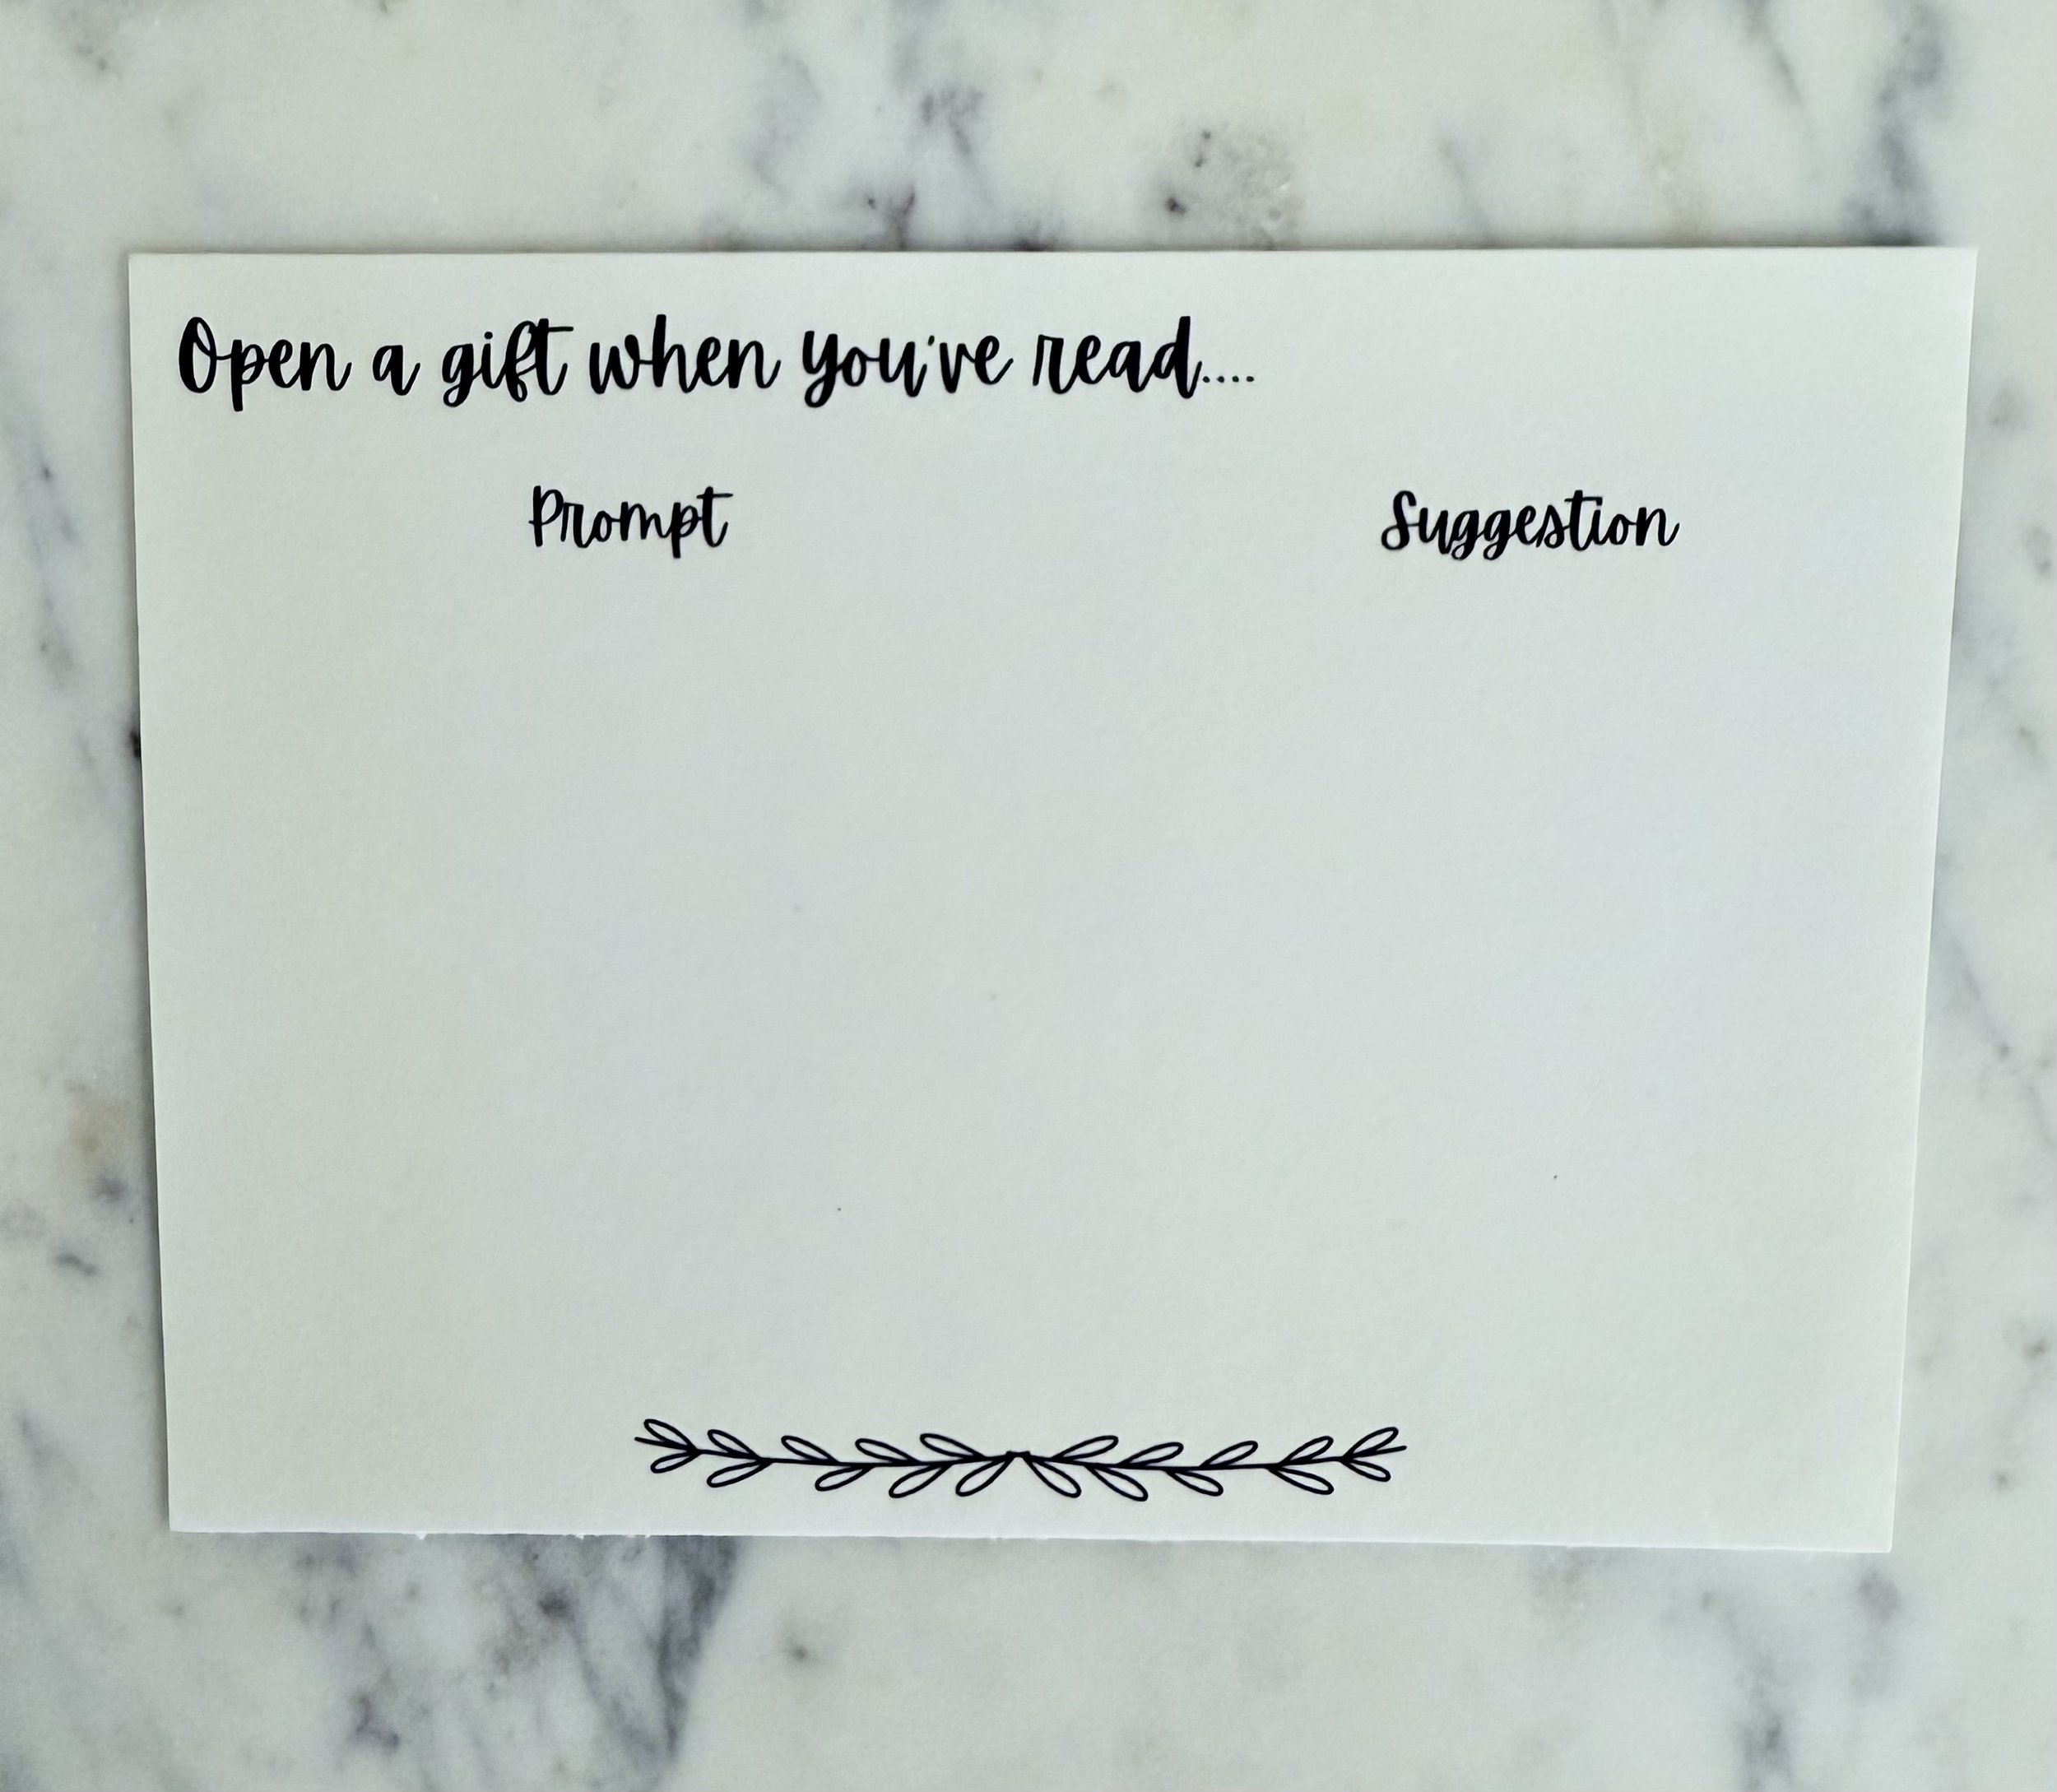 Open a gift when you've read....
Prompt Suggestion